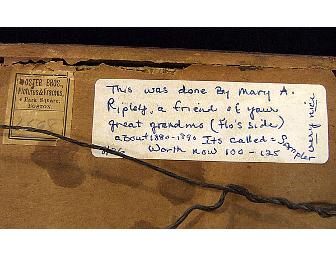 FOSTER BROS.
Pictures & Frames,
4 Park Square,
BOSTON.
This was done By Mary A.
Ripley, a friend of your
great grandma (Flo's side)
about 1880-1890 Its called = Sampler
Worth now 100 - 125
very nice